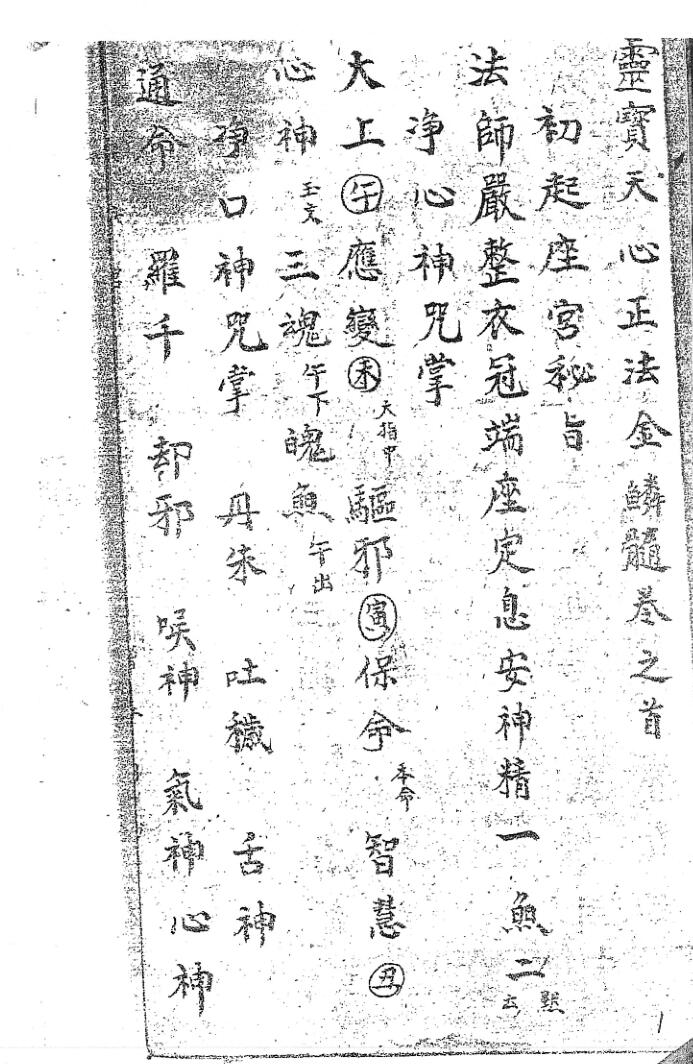 靈寶天心正法金鱗髓卷之首
初起座宮秘旨
法師嚴整衣冠端座定息安神精一炁二
淨心神咒掌
大上午應變未大指中驅邪寅保命本命智慧丑
心神玉文三魂午下魄炁午出
淨口神咒掌 丹朱 吐穢 舌神
通命 羅千 却邪 喉神 氣神心神
1